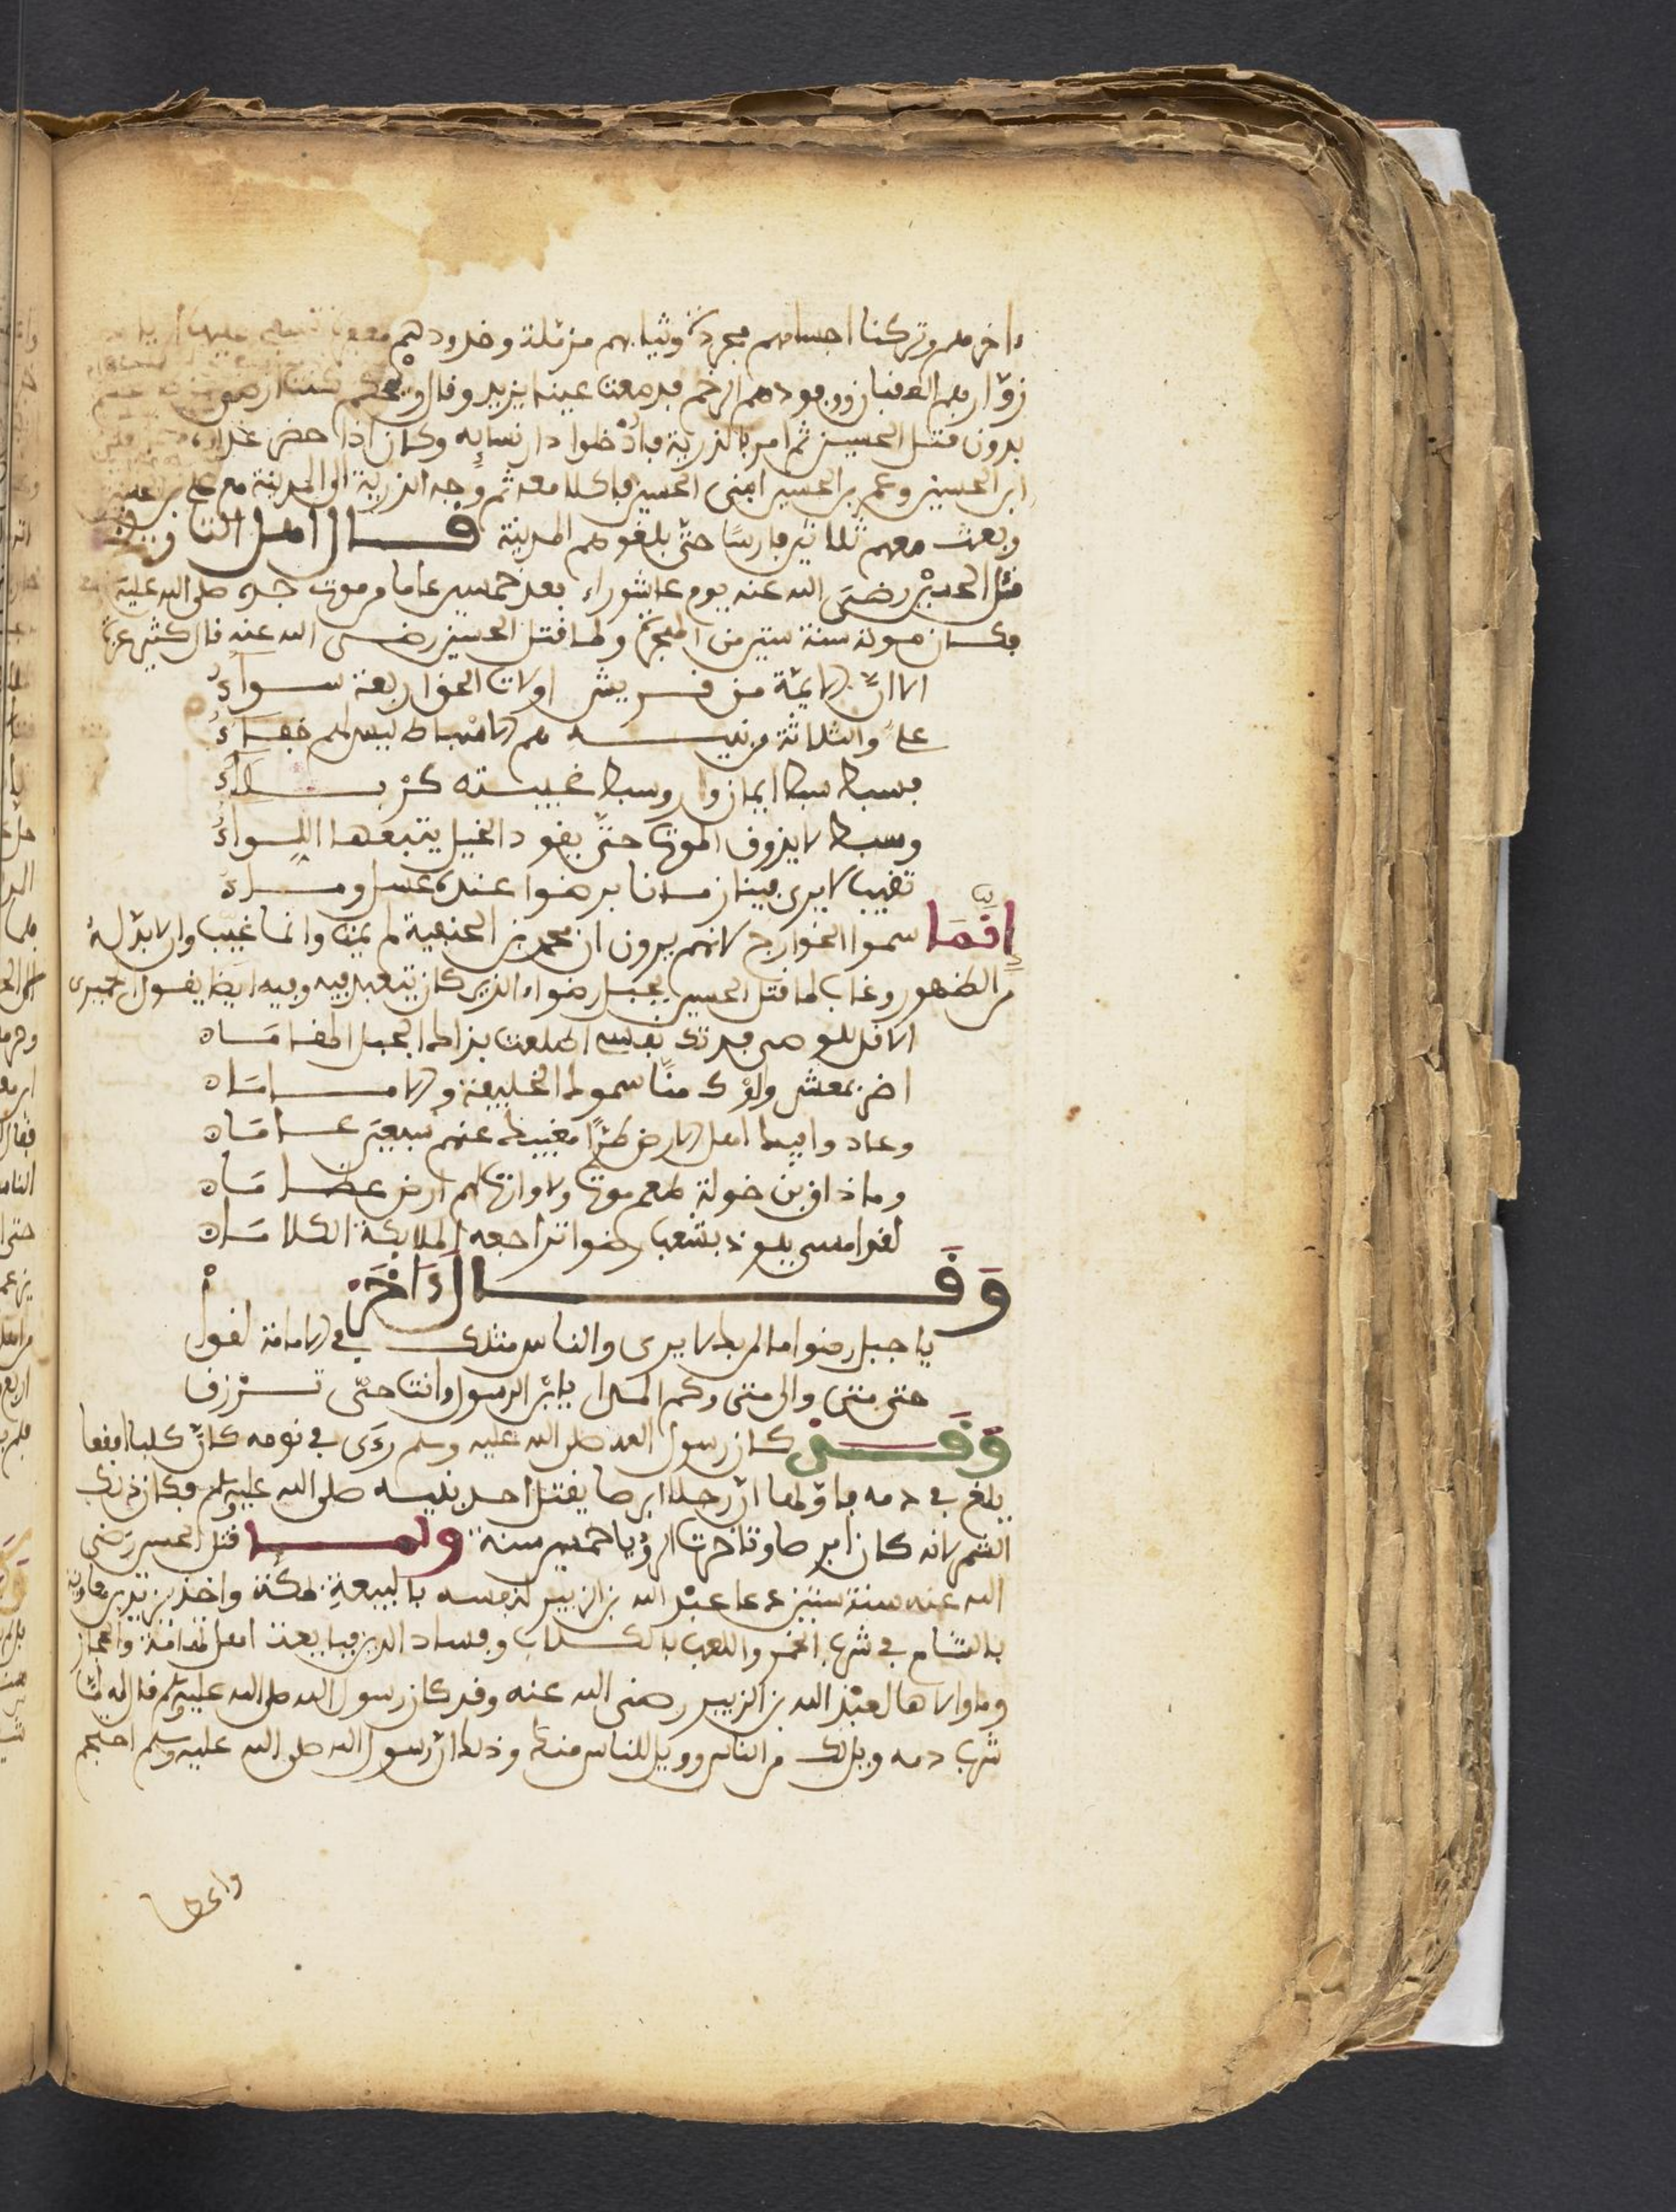 ءاخرهم وتركنا اجسادهم مجردة وثيابهم مزملة وخدودهم معفرة
زوارهم العقبان ووفودهم الرخم فدمعت عينا يزيد وقال ويحكم كنت ارضى
بدون قتل الحسين ثم امر بالذرية فادخلوا دار نسايه وكان اذا حضر غداءه
ابن الحسين وعمر بن الحسين ابني الحسين فاكلا معه ثم وجه الذرية الى المدينة مع علي بن الحسين
وبعث معهم ثلاثين فارسا حتى بلغوهم المدينة قال اهل التاريخ
قتل الحسين رضي الله عنه يوم عاشوراء بعد خمسين عاما من موت جده صلى الله عليه
فكان موته سنة ستين من الهجرة ولما قتل الحسين رضى الله عنه قال كثير عزة
الا ان الايمة من قريش اولات الحق اربعة سواء
علي والثلاثة من بنيه هم الاسباط ليس لهم خفاء
فسبط سبط ايمان وبر وسبط غيبته كربلاء
وسبط لا يذوق الموت حتى يقود الخيل يتبعها اللواء
تغيب لا يرى فينا زمانا برضوا عنده عسل وماء
انما سموا الخوارج لانهم يرون ان محمد بن الحنفية لم يمت وانما غيب وان لا بد له
من الظهور وغاب لما قتل الحسين بجبل رضواء الذي كان يتعبد فيه وفيه ايضا يقول الحميرى
الا قل للوصى فدتك نفسى اطلعت بذلك الجبل المقاماه
اضر بمعشر والوك منا سموك الخليفة والاماماه
وعادوا فيك اهل الارض طرا مغيبك عنهم سبعين عاماه
وما ذاق بن خولة طعم موت ولا وارت لهم ارض عظاماه
لقد امسى يلوذ بشعب رضوا تراجعه الملايكة الكلاماه
وقال ءاخر
يا جبل رضوا ما لمن بك لا يرى والناس مثلك في الامامة لقول
حتى متى والى متى وكم المدا يا بن الرسول وانت حى ترزق
وقد كان رسول الله صلى الله عليه وسلم رءى في نومه كان كلبا ابقعا
يلغ في دمه فاولها ان رجلا ابرصا يقتل احد بنيه صلى الله عليه وسلم فكان ذلك
الشمر لانه كان ابرصا وتاخرت الرؤيا خمسين سنة ولما قتل الحسين رضى
الله عنه سنة ستين دعا عبد الله بن الزبير لنفسه بالبيعة بمكة واخذ يزيد بن معاوية
بالشام في شرب الخمر واللعب بالكلاب وفساد الدين فبايعت اهل تهامة والحجاز
وما والاها لعبد الله بن الزبير رضى الله عنه وقد كان رسول الله صلى الله عليه وسلم قال له لما
شرب دمه ويل لك من الناس وويل للناس منك وذلك ان رسول الله صلى الله عليه وسلم احتجم
واعطا